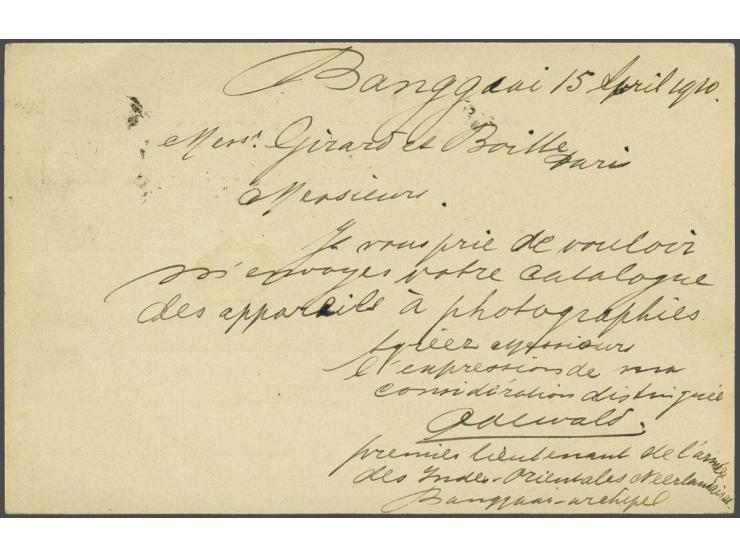 Banggaai 15 April 1910.
Mers. Girard et Boitte
Paris
Messieurs.
Je vous prie de vouloir
m'envoyer votre catalogue
des appareils à photographies
Agréez Messieurs
l'expression de ma
considération distinguée
premier lieutenant de l'armée
des Indes-Orientales Néerlandaises
Banggaai-archipel